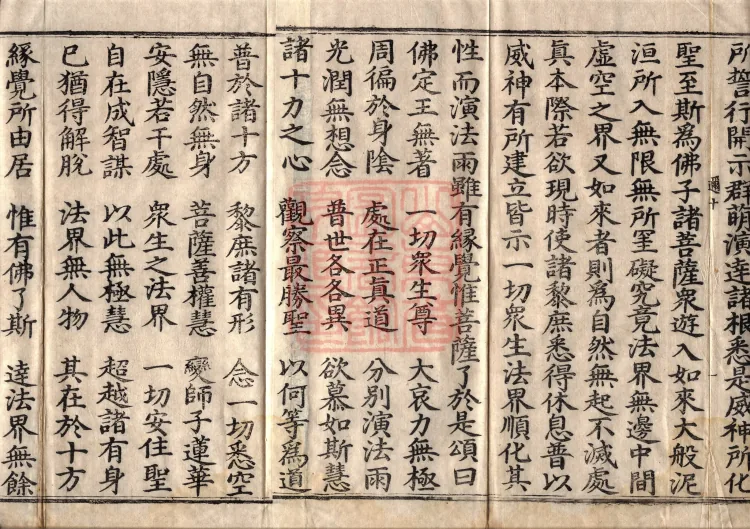 所誓行開示群萌演逹諸根悉是威神所化
聖至斯爲佛子諸菩薩衆遊入如來大般泥
洹所入無限無所罣礙究竟法界無邊中間
虛空之界又如來者則爲自然無起不滅處
眞本際若欲現時使諸黎庶悉得休息普以
威神有所建立皆示一切衆生法界順化其
性而演法雨雖有緣覺惟菩薩了於是頌曰
佛定王無著 一切衆生尊 大哀力無極
周徧於身陰 處在正眞道 分別演法雨
光潤無想念 普世各各異 欲慕如斯慧
諸十力之心 觀察最勝聖 以何等爲道
普於諸十方 黎庶諸有形 念一切悉空
無自然無身 菩薩善權慧 變師子蓮華
安隱若干處 衆生之法界 一切安住聖
自在成智謀 以此無極慧 超越諸有身
已猶得解脫 法界無人物 其在於十方
緣覺所由居 惟有佛了斯 逹法界無餘